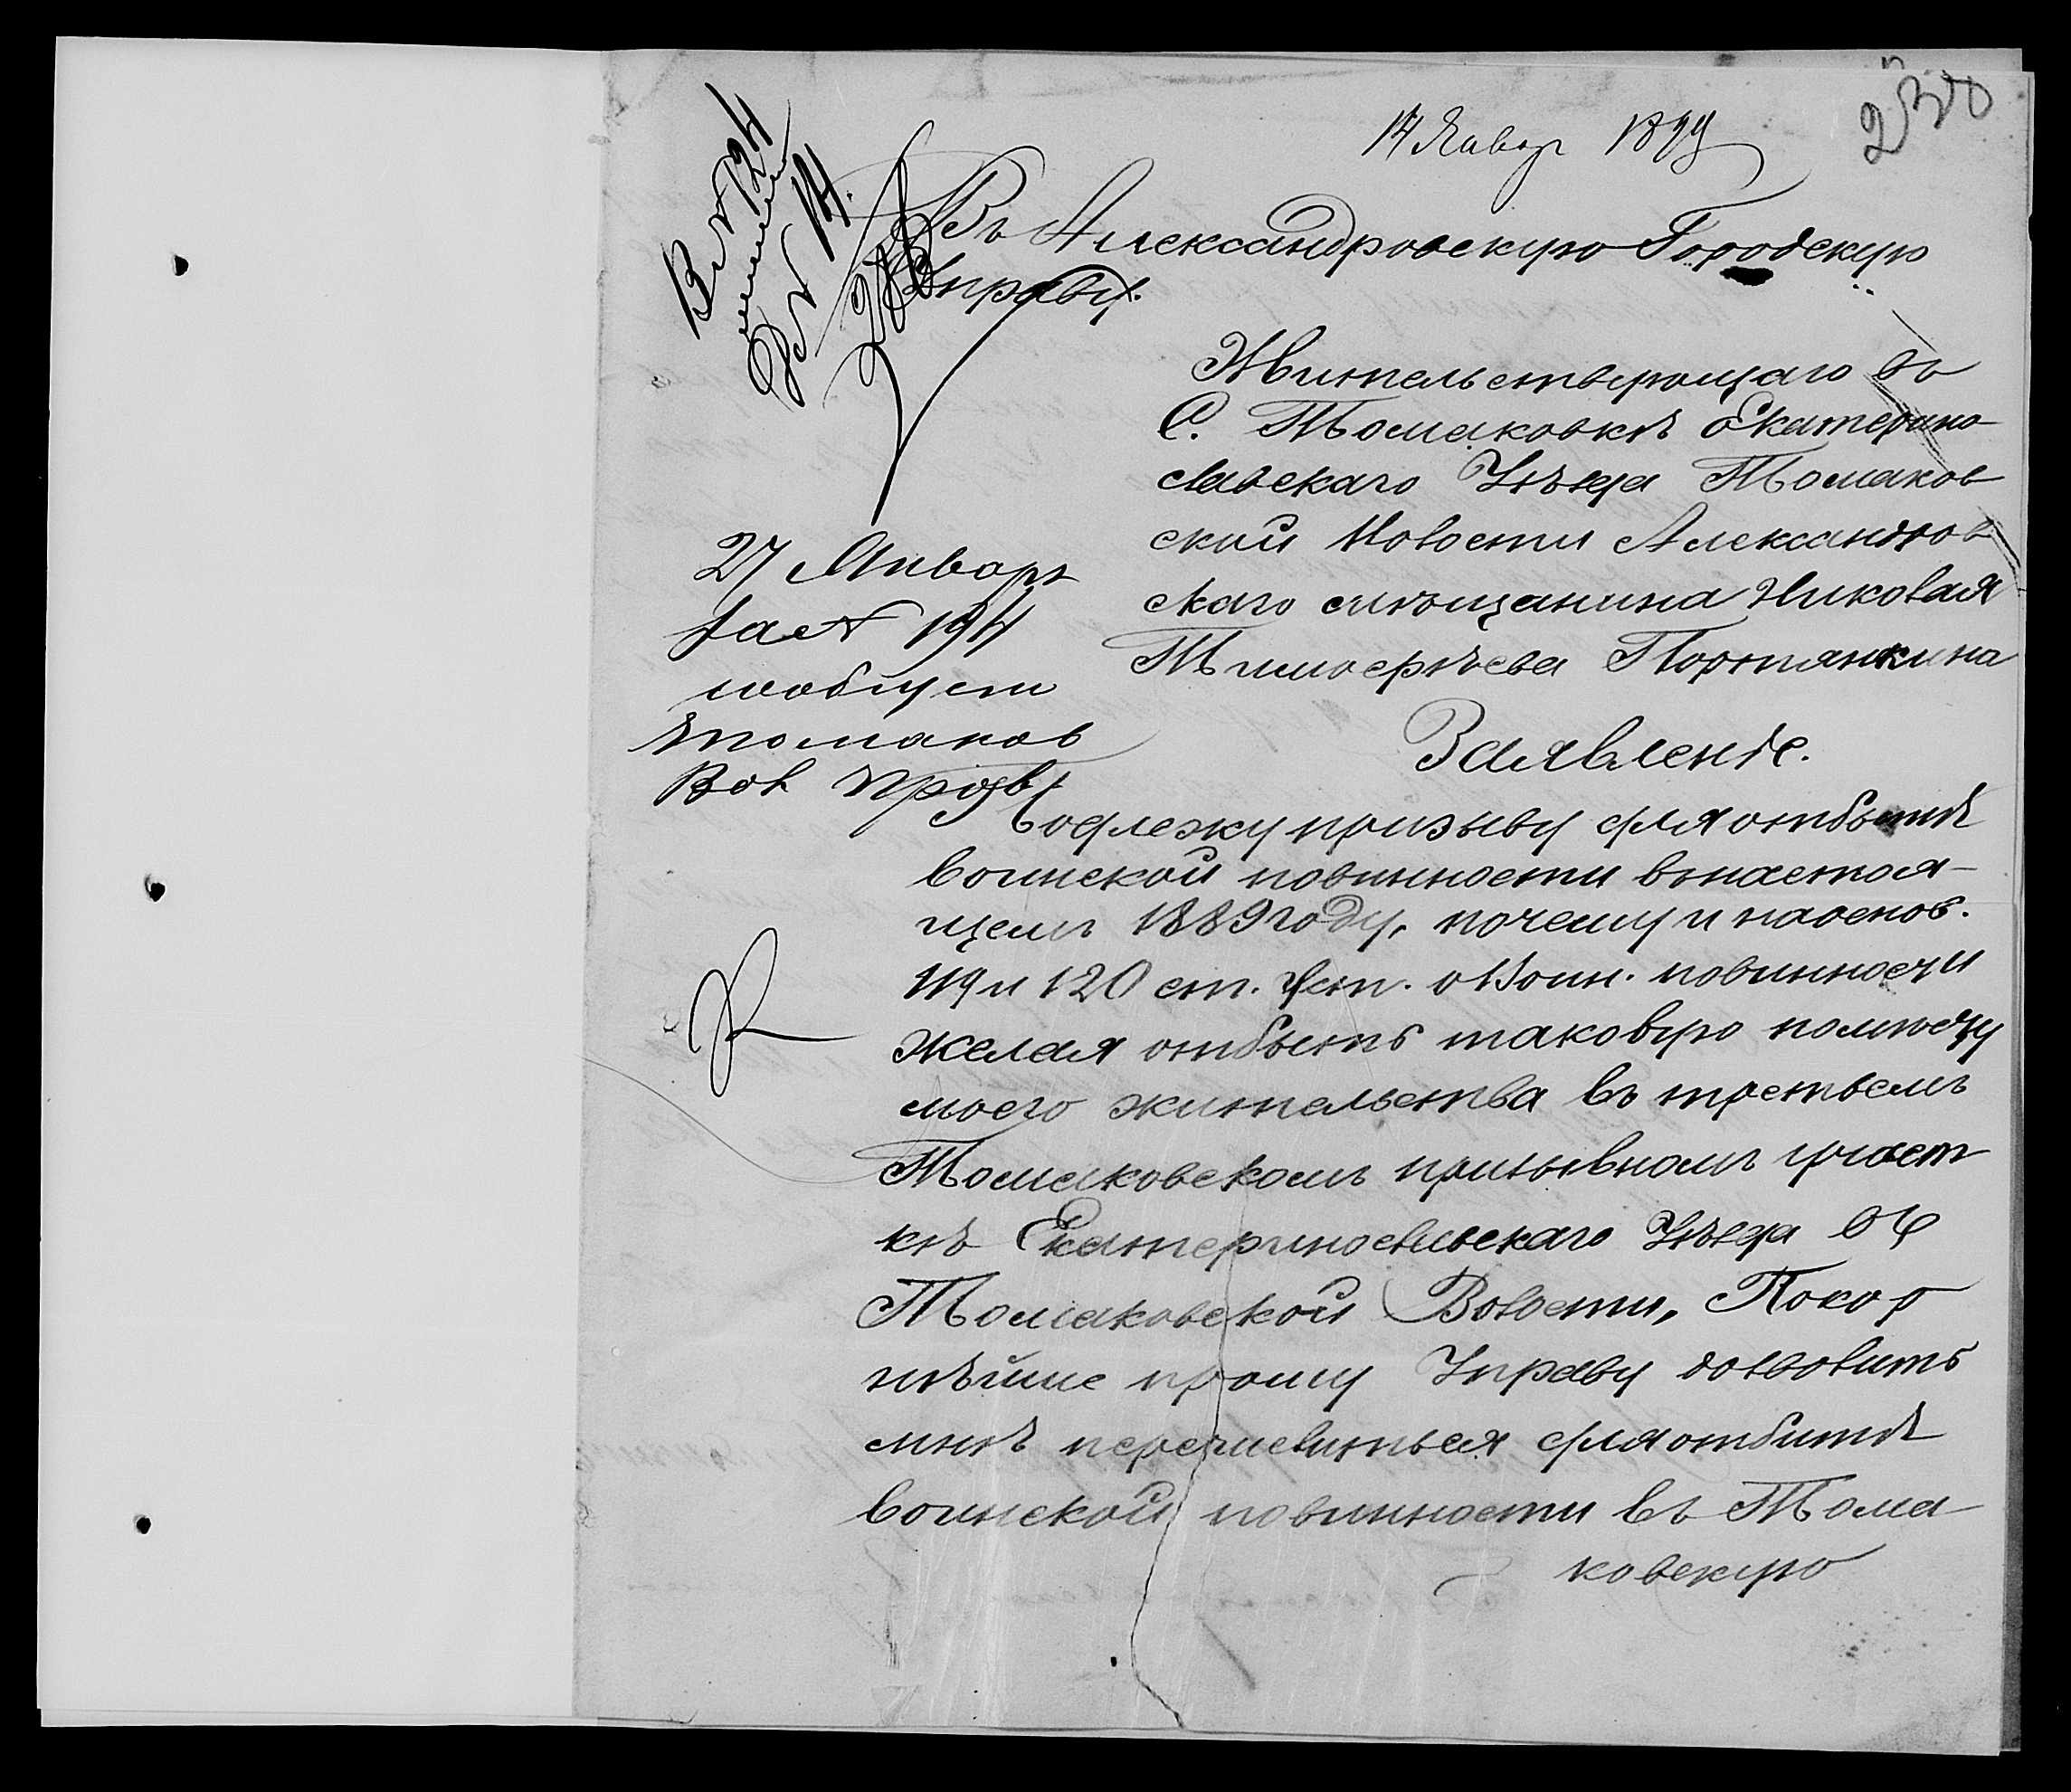 14 Январ 1889
Въ Александровскую Городскую
Управу.
Жительствующаго въ
С. Томаковкѣ Екатерино-
славскаго Уѣзда Томаков
ской Волости Александров
скаго мѣщанина Николая
Тимофѣева Портянкина
Заявленіе.
Подлежу призыву для отбытія
воинской повинности внастоя-
щемъ 1889 году, почему и наоснов.
119 и 120 ст. Уст. о Воин. повинности
желая отбыть таковую помѣсту
моего жительства въ третьемъ
Томаковскомъ призывномъ участ
кѣ Екатеринославскаго Уѣзда
Томаковской Волости, Покор
нѣйше прошу Управу дозволить
мнѣ перечислиться для отбитія
воинской повинности въ Тома
ковскую
27 Январь
за № 194
сообщен
Томаков
Вол Правл